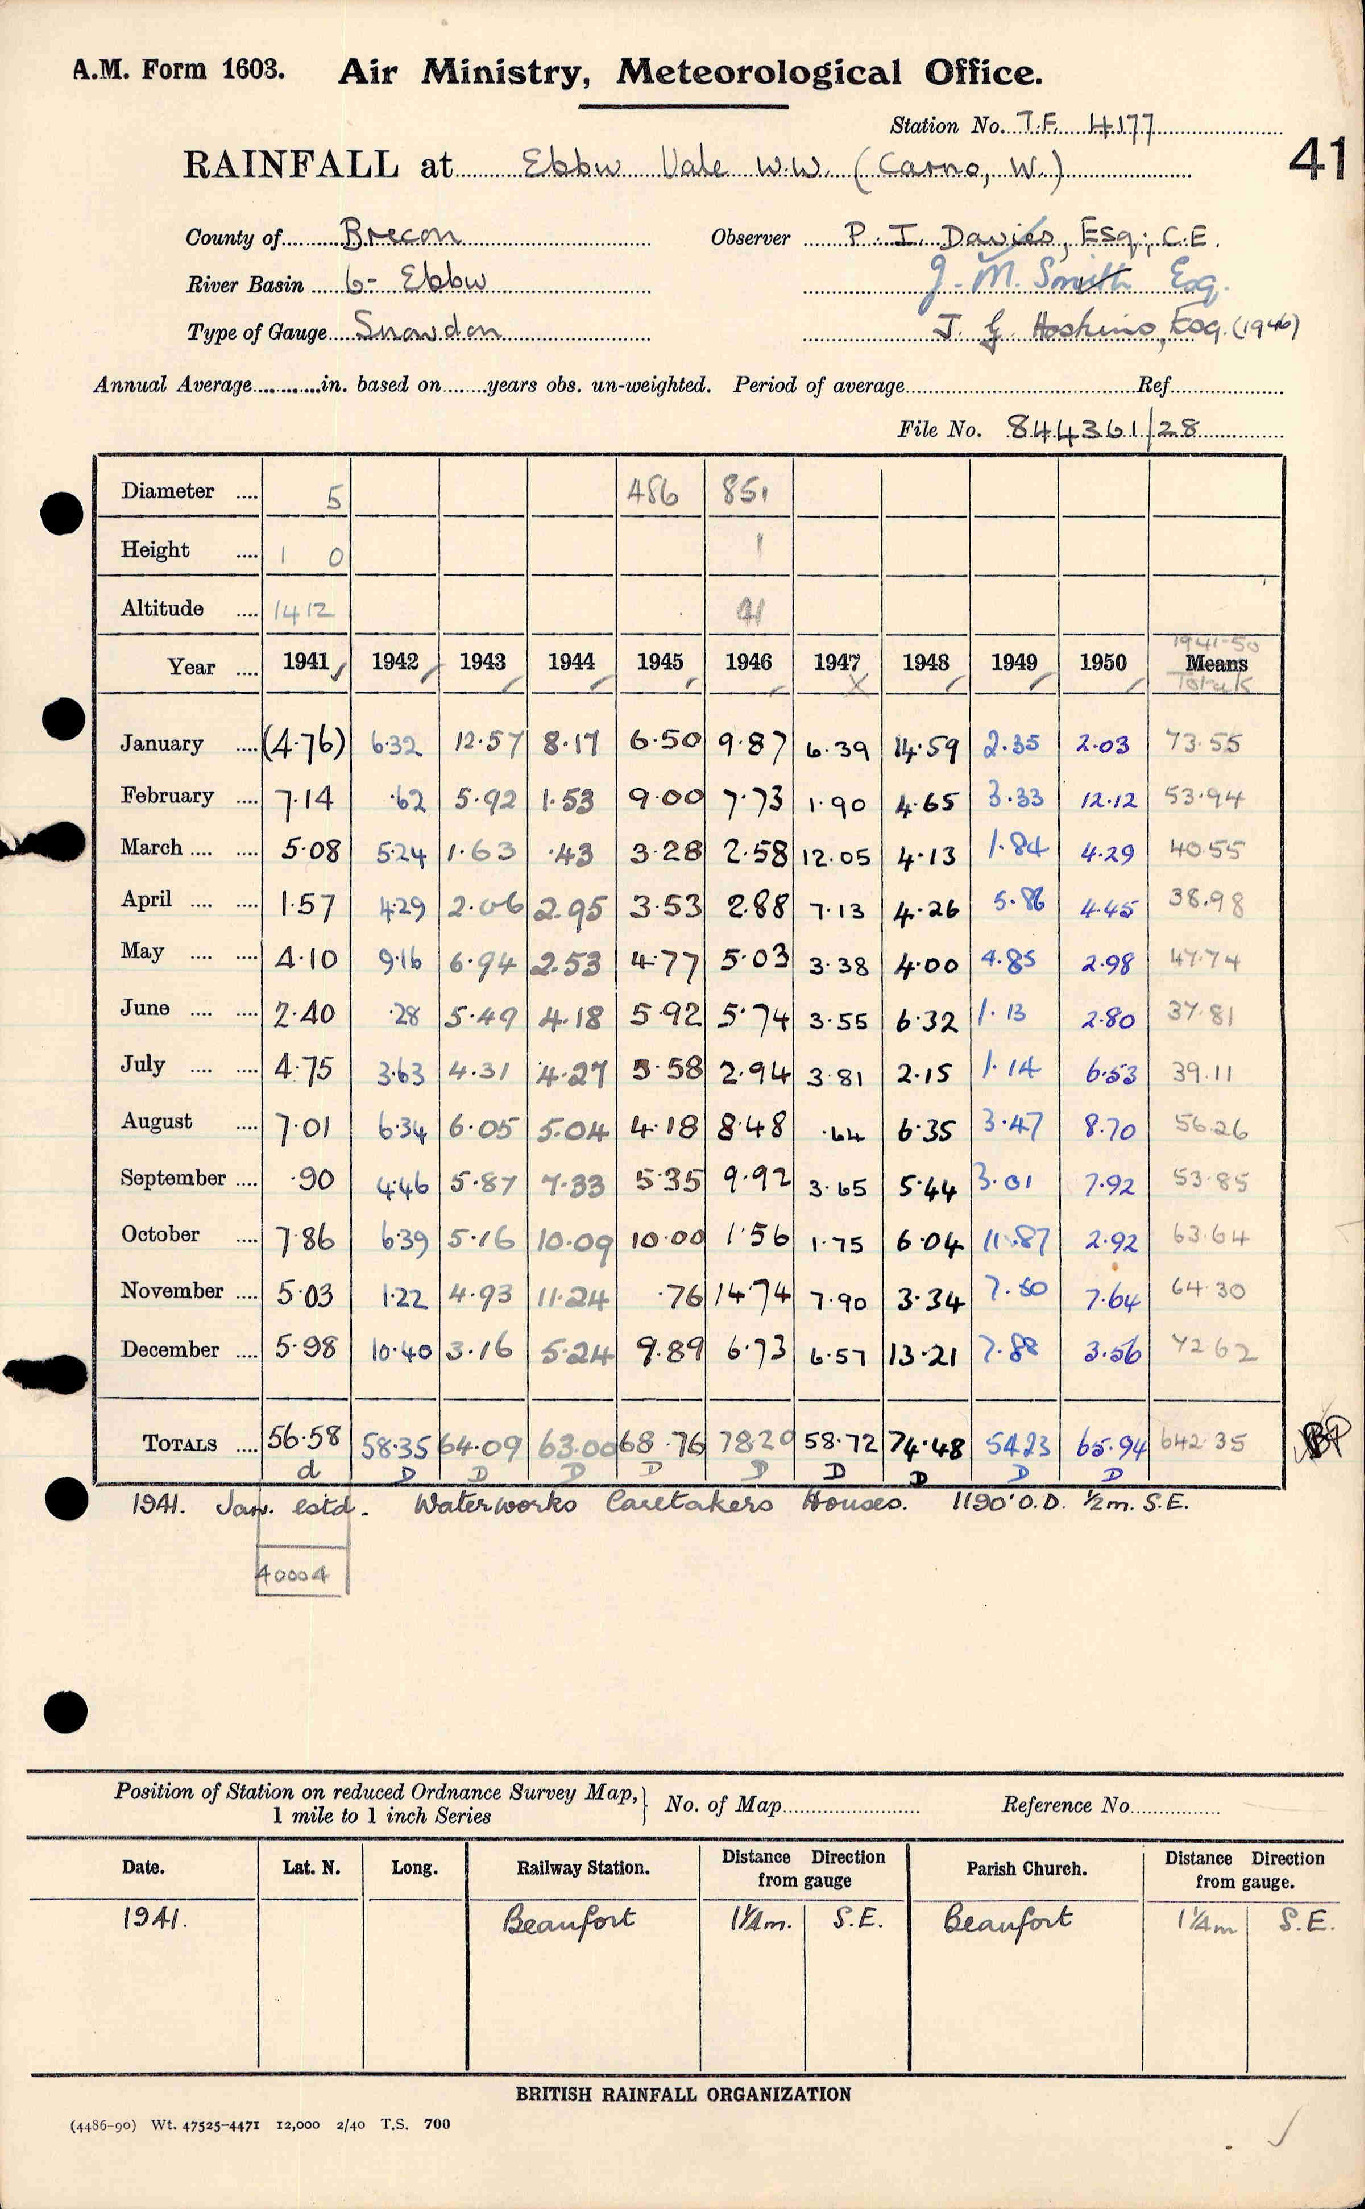 A.M. Form 1603. Air Ministry, Meteorological Office.
Station No. T.F. 4177
41
RAINFALL at Ebbw Vale W.W. (Carno, W.)
County of Brecon Observer P. I. Davies, Esq; C.E.
River Basin 6- Ebbw J. M. Smith Esq.
Type of Gauge Snowdon J. G. Hoskins, Esq. (1946)
Annual Average in. based on years obs. un-weighted. Period of average Ref
File No. 844361/28
Diameter .... 5 486 851
Height .... 1 0 1
Altitude .... 1412
1941-50
Year .... 1941 1942 1943 1944 1945 1946 1947 1948 1949 1950 Means
Totals
January .... (4.76) 6.32 12.57 8.17 6.50 9.87 6.39 14.59 2.35 2.03 73.55
February .... 7.14 .62 5.92 1.53 9.00 7.73 1.90 4.65 3.33 12.12 53.94
March .... .... 5.08 5.24 1.63 .43 3.28 2.58 12.05 4.13 1.84 4.29 40.55
April .... .... 1.57 4.29 2.06 2.95 3.53 2.88 7.13 4.26 5.86 4.45 38.98
May .... .... 4.10 9.16 6.94 2.53 4.77 5.03 3.38 4.00 4.85 2.98 47.74
June .... .... 2.40 .28 5.49 4.18 5.92 5.74 3.55 6.32 1.13 2.80 37.81
July .... .... 4.75 3.63 4.31 4.27 5.58 2.94 3.81 2.15 1.14 6.53 39.11
August .... 7.01 6.34 6.05 5.04 4.18 8.48 .64 6.35 3.47 8.70 56.26
September .... .90 4.46 5.87 7.33 5.35 9.92 3.65 5.44 3.01 7.92 53.85
October .... 7.86 6.39 5.16 10.09 10.00 1.56 1.75 6.04 11.87 2.92 63.64
November .... 5.03 1.22 4.93 11.24 .76 14.74 7.90 3.34 7.50 7.64 64.30
December .... 5.98 10.40 3.16 5.24 9.89 6.73 6.57 13.21 7.88 3.56 72.62
TOTALS .... 56.58 58.35 64.09 63.00 68.76 78.20 58.72 74.48 54.23 65.94 642.35
d D D D D D D D D D
1941. Jan. estd. Waterworks Caretakers Houses. 1190' O.D. ½m. S.E.
40004
Position of Station on reduced Ordnance Survey Map, No. of Map Reference No.
1 mile to 1 inch Series
Date. Lat. N. Long. Railway Station. Distance Direction from gauge Parish Church. Distance Direction from gauge.
1941. Beaufort 1¼m. S.E. Beaufort 1¼m S.E.
BRITISH RAINFALL ORGANIZATION
(4486-90) Wt. 47525-4471 12,000 2/40 T.S. 700